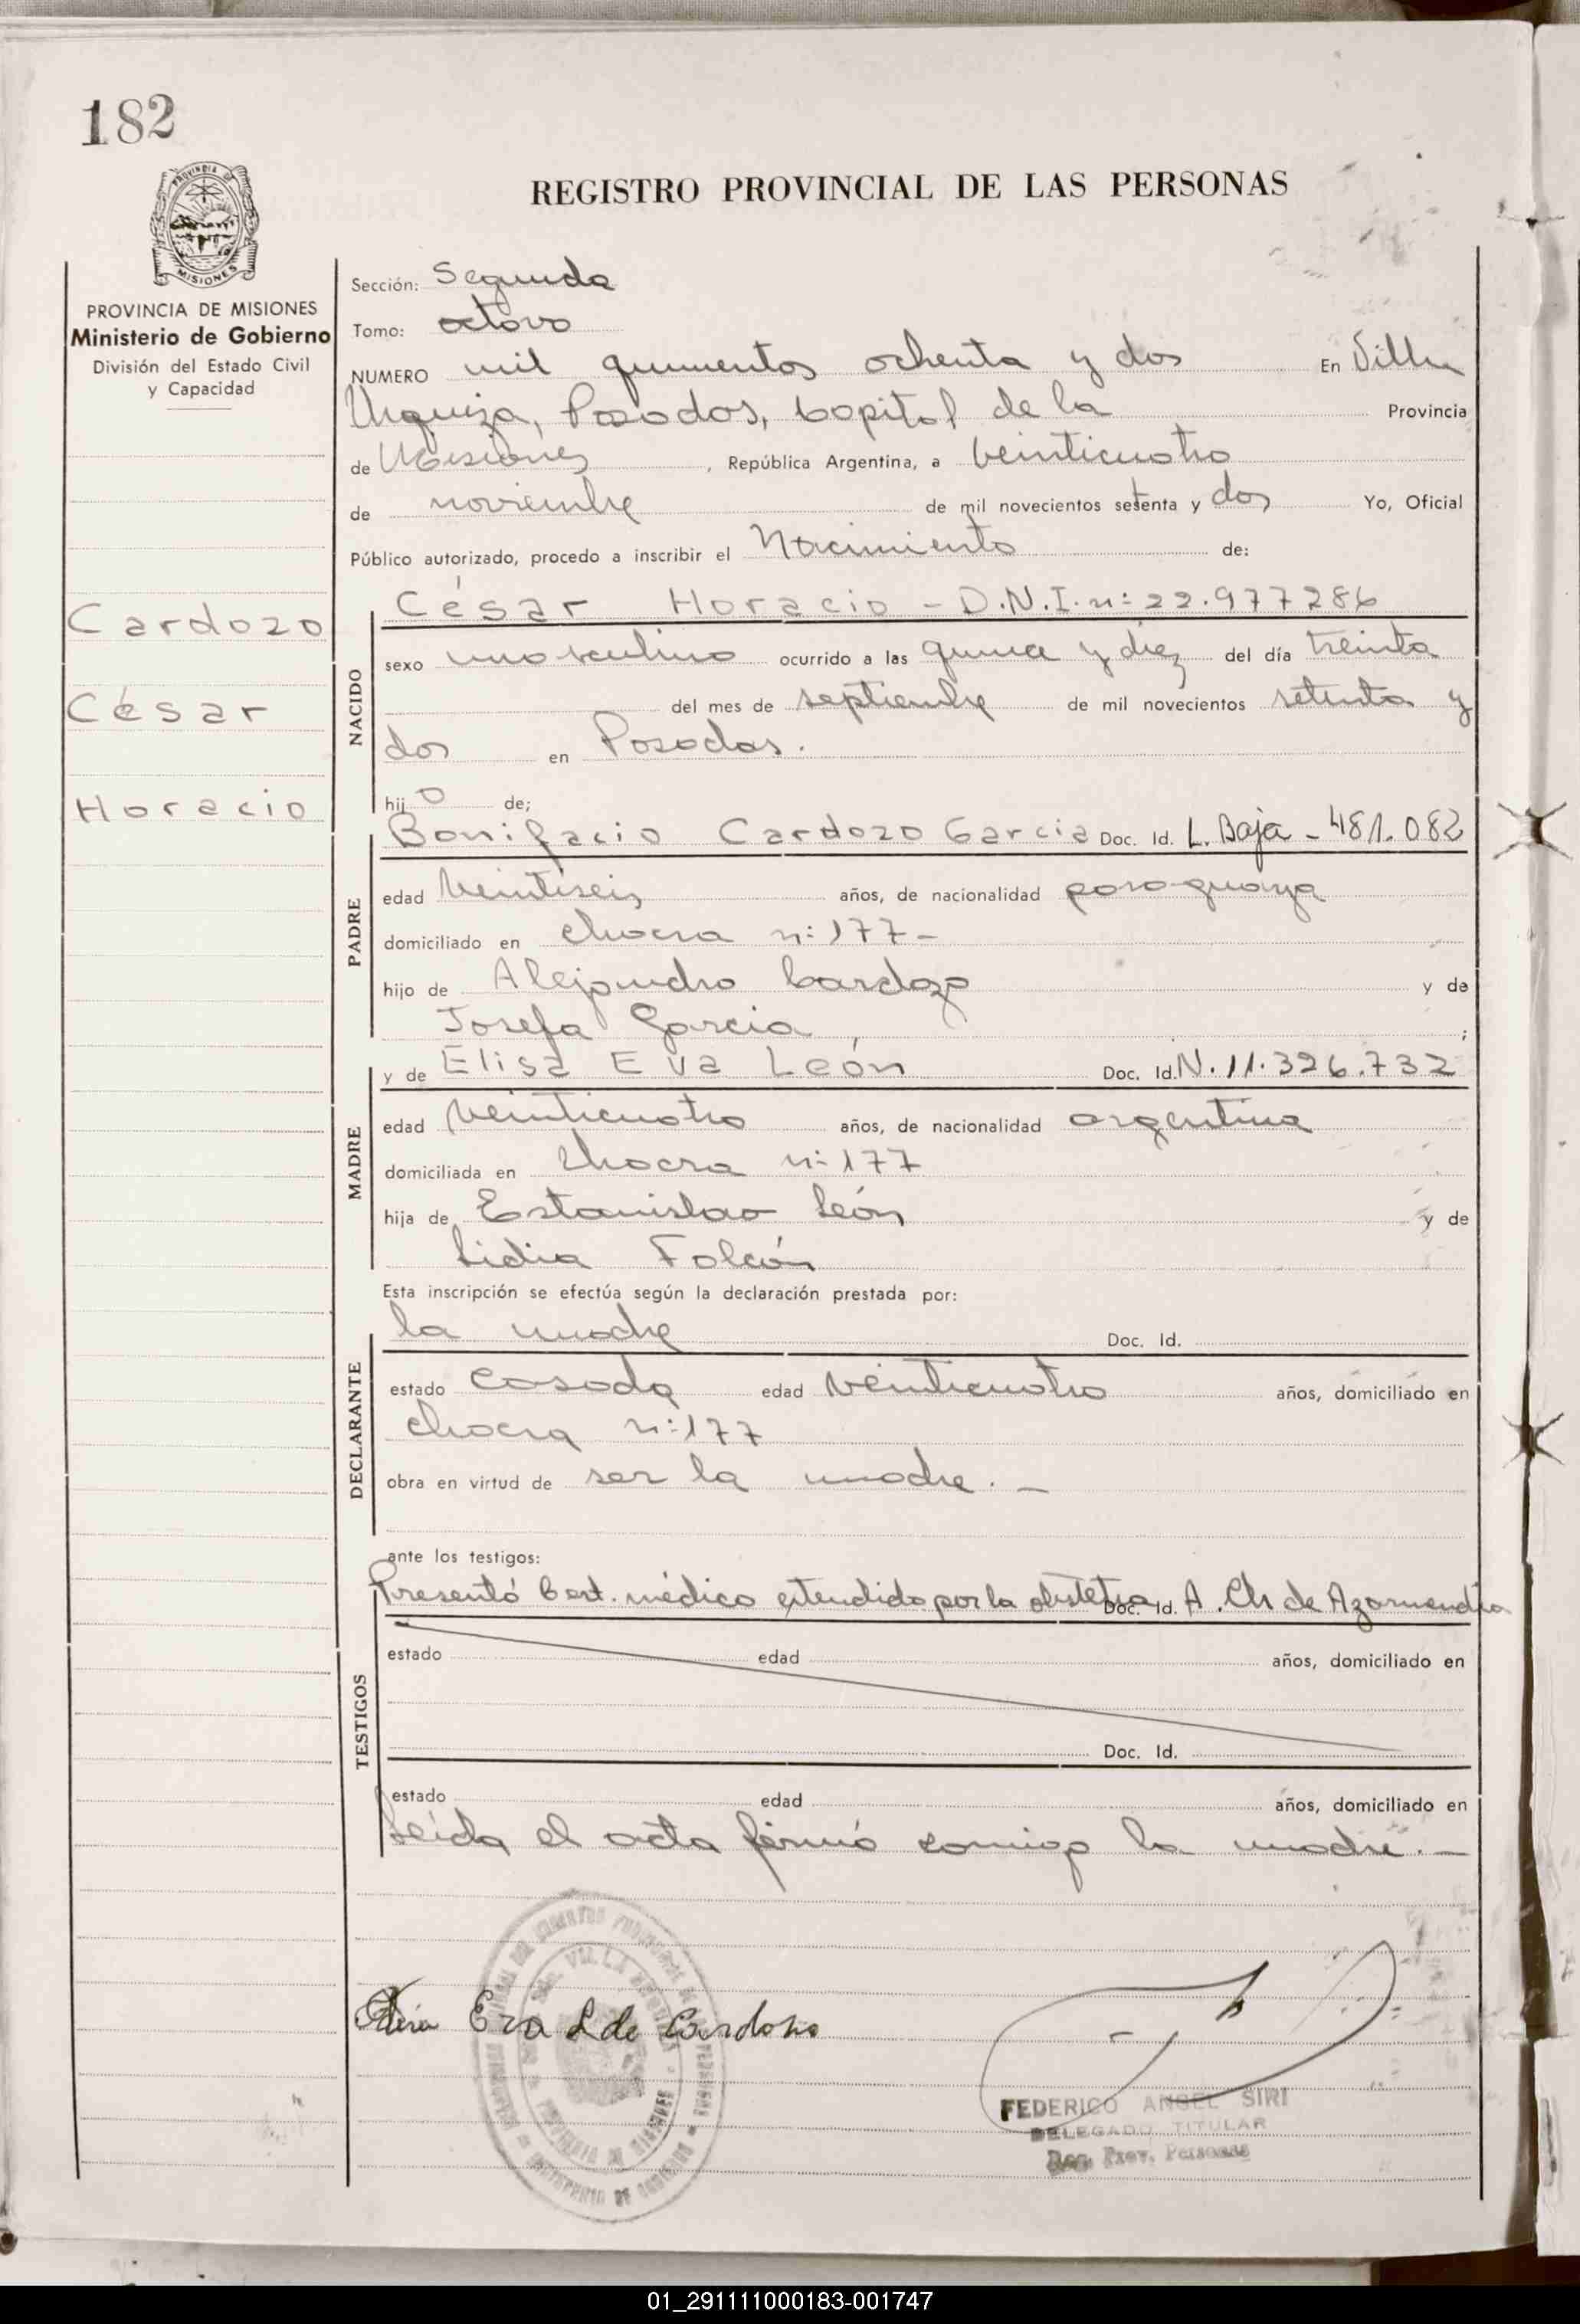 182
PROVINCIA DE
MISIONES
REGISTRO PROVINCIAL DE LAS PERSONAS
PROVINCIA DE MISIONES
Ministerio de Gobierno
División del Estado Civil
y Capacidad
Cardozo
César
Horacio
Sección: Segunda
Tomo: octavo
NUMERO mil quinientos ochenta y dos En Villa
Urquiza, Posadas, Capital de la Provincia
de Misiones, República Argentina, a veinticuatro
de noviembre de mil novecientos setenta y dos Yo, Oficial
Público autorizado, procedo a inscribir el Nacimiento de:
César Horacio - D.N.I. n: 22.977286
NACIDO
sexo masculino ocurrido a las quince y diez del día treinta
del mes de septiembre de mil novecientos setenta y
dos en Posadas.
hijo de;
Bonifacio Cardozo Garcia Doc. Id. L. Baja - 481.082
PADRE
edad veintiseis años, de nacionalidad paraguaya
domiciliado en chacra n: 177-
hijo de Alejandro Cardozo y de
Josefa Garcia ;
y de Elisa Eva León Doc. Id. N. 11.326.732
MADRE
edad veinticuatro años, de nacionalidad argentina
domiciliada en chacra n: 177
hija de Estanislao León y de
Lidia Falcón
Esta inscripción se efectúa según la declaración prestada por:
la madre Doc. Id.
DECLARANTE
estado casada edad veinticuatro años, domiciliado en
chacra n: 177
obra en virtud de ser la madre. -
ante los testigos:
Presentó Cert. médico extendido por la obstetra Doc. Id. A. Ch de Azarmendia
TESTIGOS
estado edad años, domiciliado en
Doc. Id.
estado edad años, domiciliado en
Leída el acta firmó conmigo la madre. -
Eva L de Cardozo
FEDERICO ANGEL SIRI
DELEGADO TITULAR
Reg. Prov. Personas
01_291111000183-001747